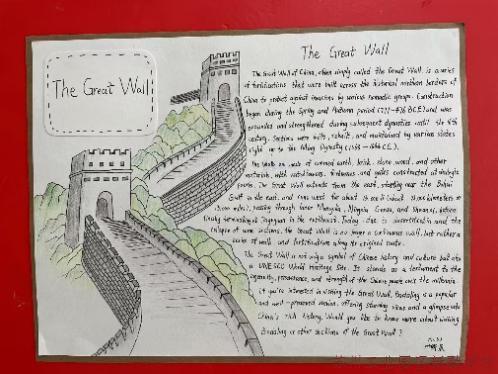 The Great Wall
The Great Wall
The Great Wall of China, often simply called the Great Wall, is a series
of fortifications that were built across the historical northern borders of
China to protect against invasions by various nomadic groups. Construction
began during the Spring and Autumn period (771-476 BCE) and was
and strengthened during subsequent dynasties until the 16th
century. Sections were built, rebuilt, and maintained by various states
right up to the Ming Dynasty (1368-1644 CE).
The Walls are made of rammed earth, brick, stone, wood, and other
materials, with watchtowers, and gates constructed at strategic
points. The Great Wall extends from the east, starting near the Bohai
Gulf in the east, and runs west for about kilometers or
miles), passing through Inner Mongolia, Ningxia, Gansu, and before
finally terminating at Jiayuguan in the northwest. Today, due to and the
collapse of some sections, the Great Wall is no longer a continuous wall, but rather a
series of walls and fortifications along its original route.
The Great Wall is not only a symbol of Chinese history and culture but also
a UNESCO World Heritage Site. It stands as a testament to the
ingenuity, perseverance, and strength of the Chinese people over the millennia.
If you're interested in visiting the Great Wall, Badaling is a popular
and well-preserved section, offering stunning views and a glimpse into
China's rich history. Would you like to know more about visiting
Badaling or other sections of the Great Wall?